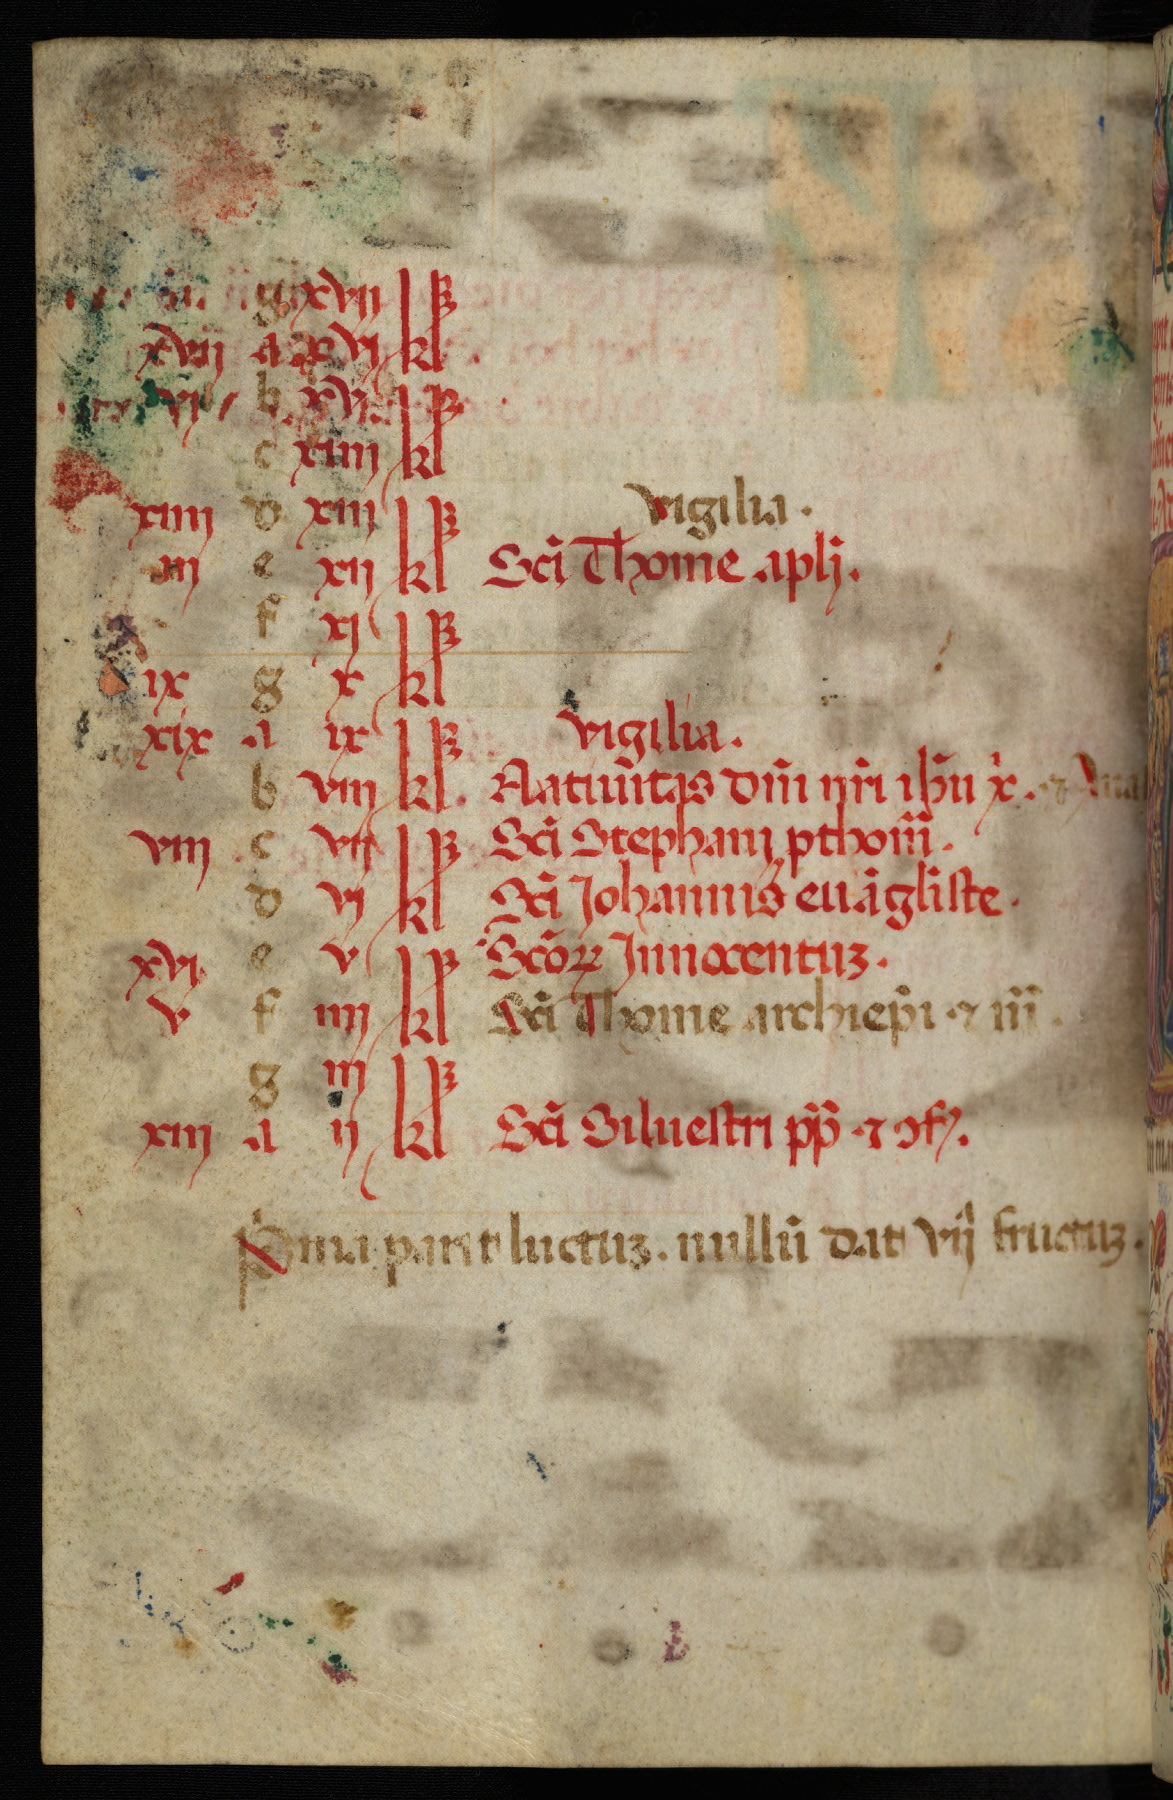 g xvii kl
xvii a xvi kl .
vi b xvi kl
c xiiii kl
xiiii d xiii kl vigilia .
iii e xii kl Scī Thome aplī .
f xi kl
ix g x kl
xix a ix kl vigilia .
b viii kl . Natiuitas dnī nrī ihū x̄ .
viii c vii kl Scī Stephani pthom̄ .
d vj kl Scī Johannis euāgliste .
xvi e v kl Scōꝝ Innocentuꝫ .
v f iiii kl Scī Thome archiepī ⁊ m̄ .
g iii kl
xiii a ij kl Scī Siluestri pp̄ ⁊ ↄf .
luctuꝫ . nullū dat vij fructuꝫ .